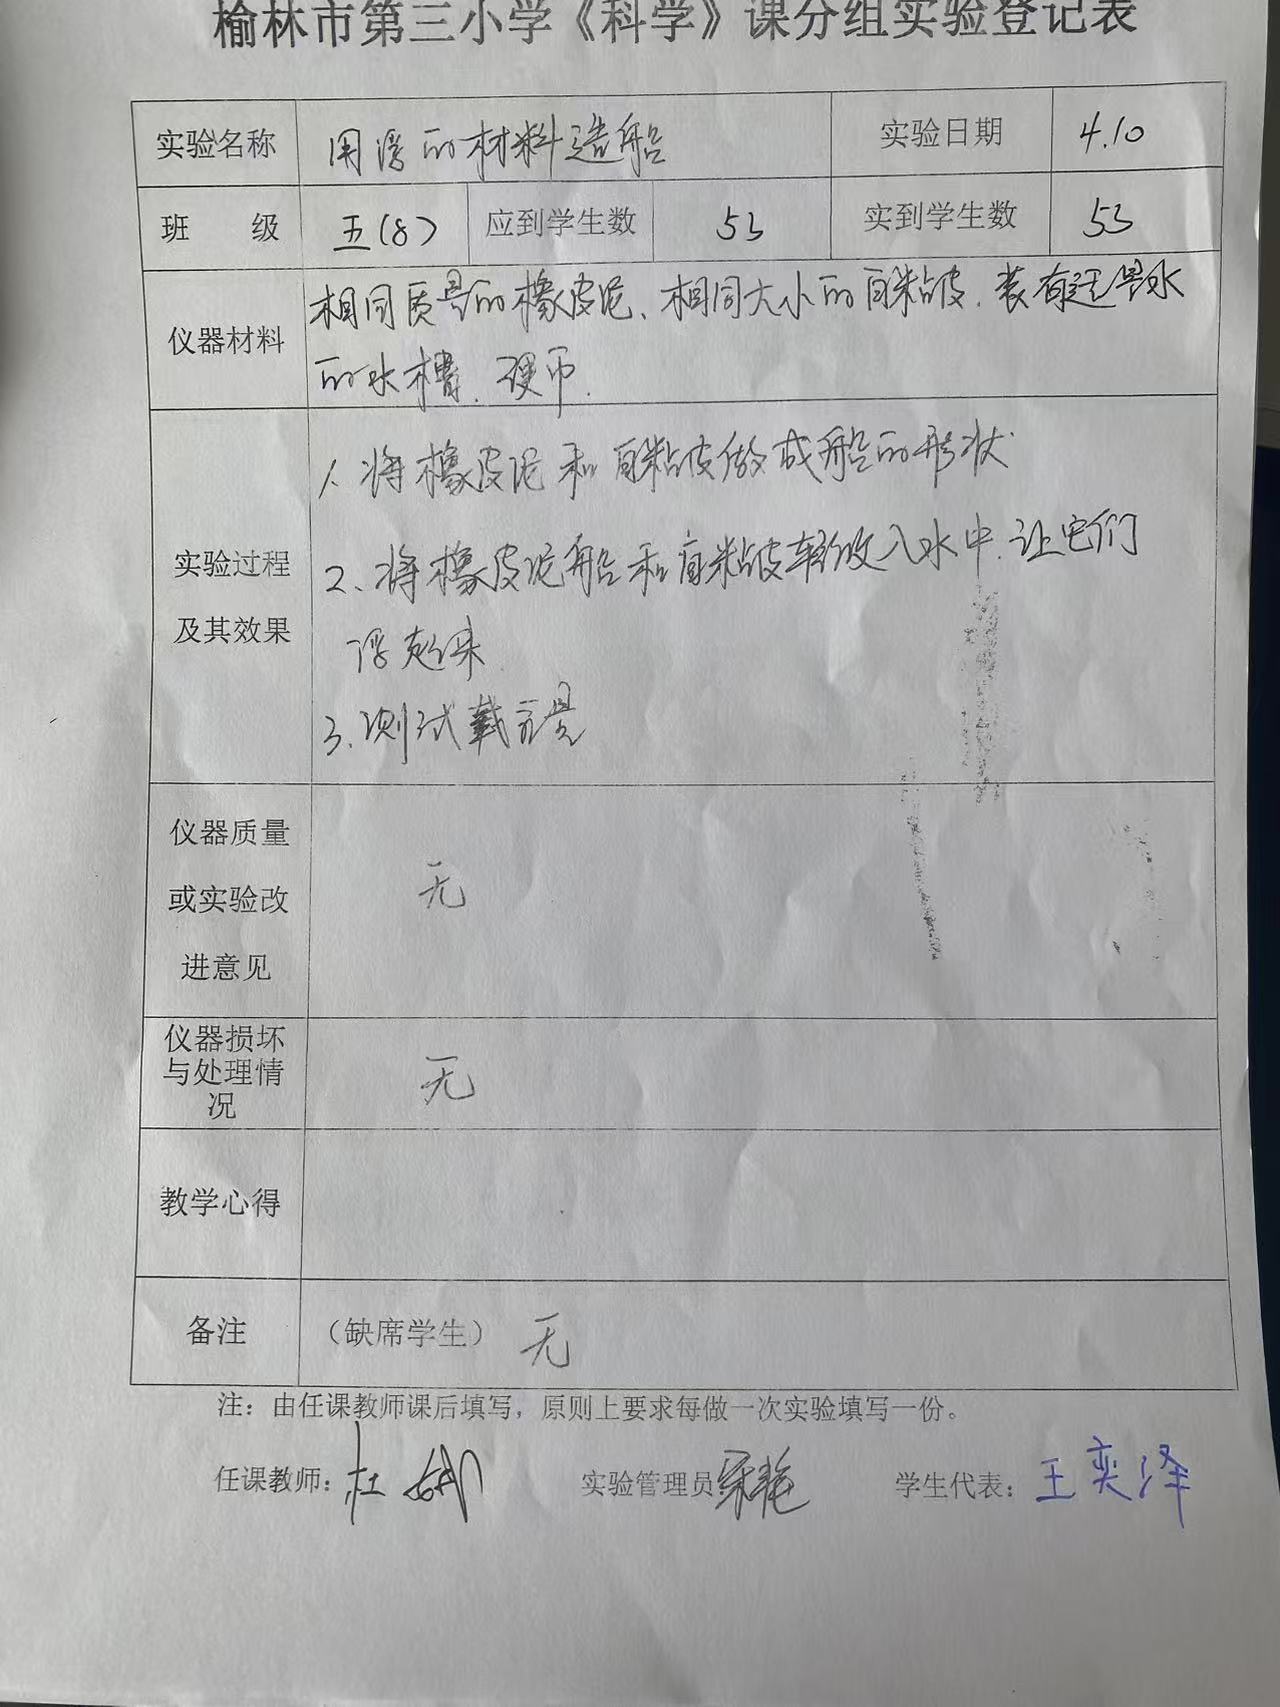 榆林市第三小学《科学》课分组实验登记表
实验名称 用浮的材料造船 实验日期 4.10
班 级 五(8) 应到学生数 53 实到学生数 53
仪器材料
相同质量的橡皮泥、相同大小的自粘皮、装有适量水
的水槽、硬币.
实验过程
及其效果
1、将橡皮泥和自粘皮做成船的形状
2、将橡皮泥船和自粘皮轻放入水中.让它们
浮起来
3、测试载重量
仪器质量
或实验改
进意见
无
仪器损坏
与处理情
况
无
教学心得
备注 （缺席学生） 无
注：由任课教师课后填写，原则上要求每做一次实验填写一份。
任课教师：杜 实验管理员：宋艳 学生代表：王奕泽